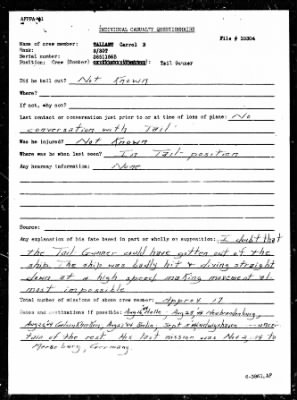 AFPPA-11
INDIVIDUAL CASUALTY QUESTIONNAIRE
File # 10304
Name of crew member: TALLANT Carrol D
Rank: S/SGT
Serial number:
Position: Crew Tail Gunner
Did he bail out? Not Known
Where?
If not, why not?
Last contact or conversation just prior to or at time of loss of plane: No
conversation with Tail
Was he injured? Not Known
Where was he when last seen? In Tail position
Any hearsay information: None
Source:
Any explanation of his fate based in part or wholly on supposition: I doubt that
the Tail Gunner could have gotten out of the
ship. The ship was badly hit & diving straight
down at a high speed making movement al
most impossible.
Total number of missions of above crew member: approx 17
Dates and destinations if possible: Aug 16 Halle, Aug 25, 44 Neubrandenburg,
Sept
tain of the rest His last mission was Nov 2, 44 to
Merseburg, Germany.